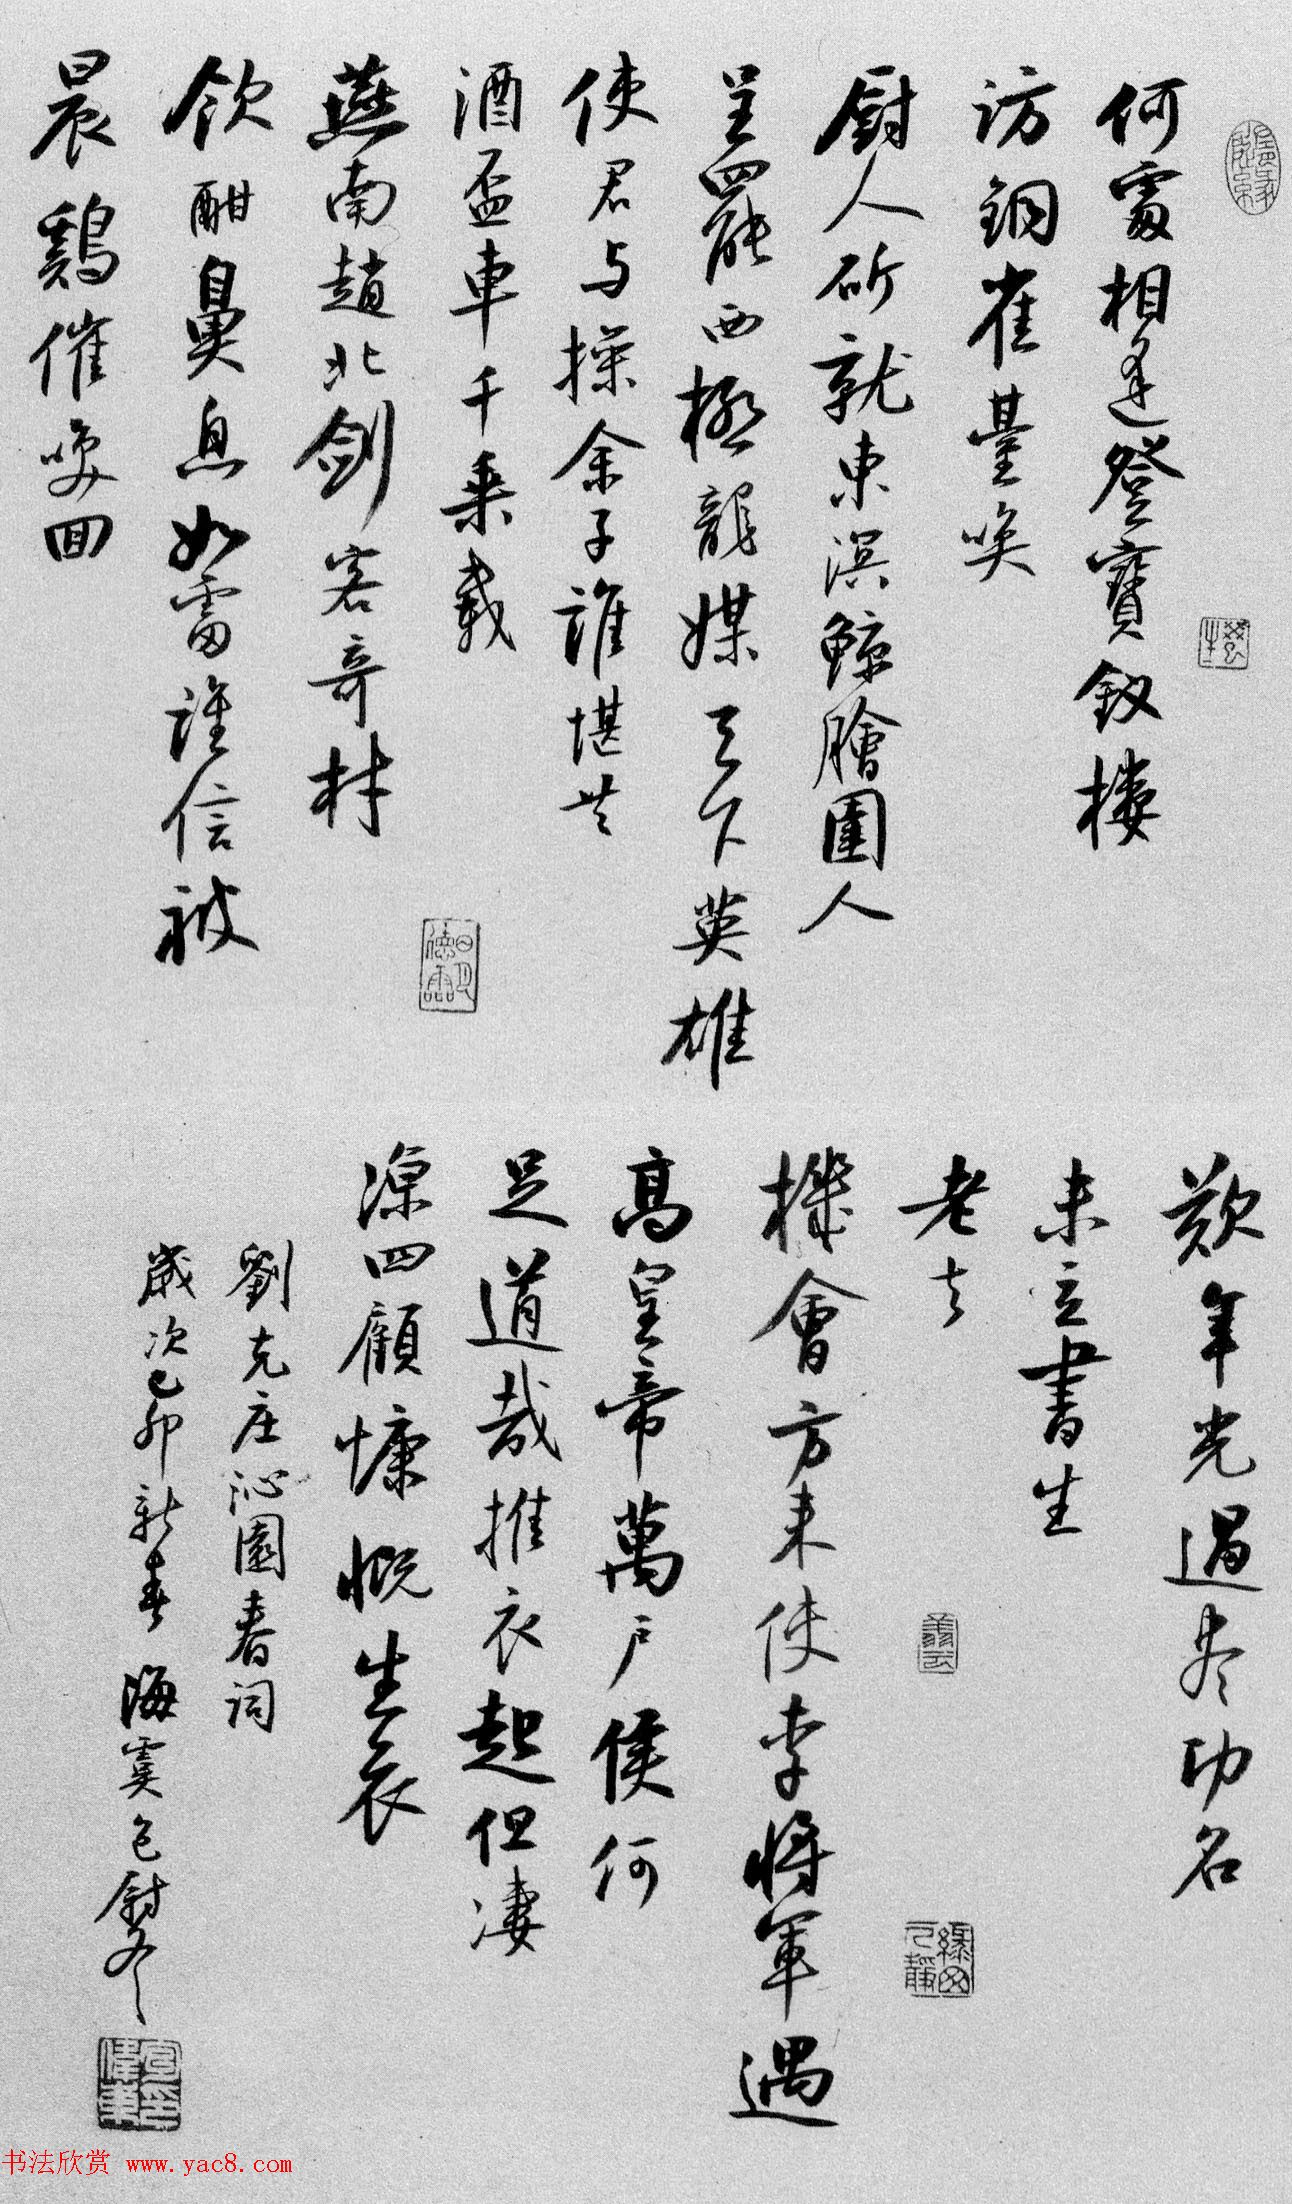 何處相逢登寶釵樓
訪銅雀臺喚
廚人斫就東溟鯨膾圉人
呈罷西極龍媒天下英雄
使君与操余子誰堪共
酒盃車千乘載
燕南趙北劍客奇材
飲酣鼻息如雷誰信被
晨鷄催喚回
歎年光過尽功名
未立書生
老去
機會方来使李將軍遇
高皇帝萬户侯何
足道哉推衣起但凄
涼四顧慷慨生哀
劉克庄沁園春詞
歲次己卯新春 海虞言
書法欣赏 www.yac8.com